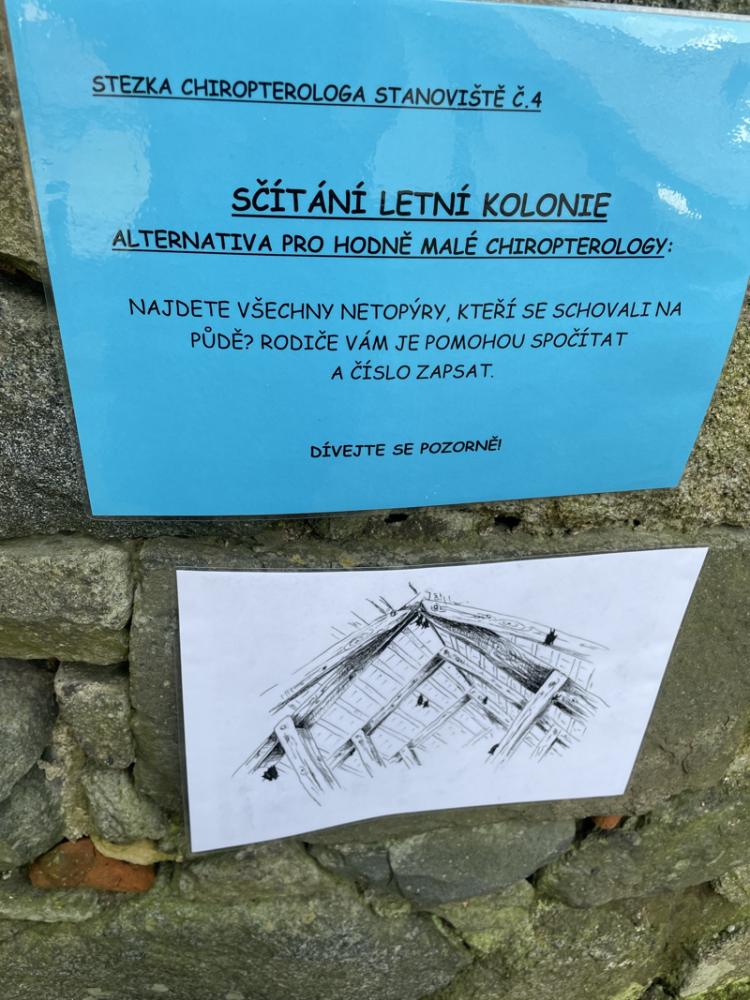 STEZKA CHIROPTEROLOGA STANOVIŠTĚ Č.4
SČÍTÁNÍ LETNÍ KOLONIE
ALTERNATIVA PRO HODNĚ MALÉ CHIROPTEROLOGY:
NAJDETE VŠECHNY NETOPÝRY, KTEŘÍ SE SCHOVALI NA
PŮDĚ? RODIČE VÁM JE POMOHOU SPOČÍTAT
A ČÍSLO ZAPSAT.
DÍVEJTE SE POZORNĚ!